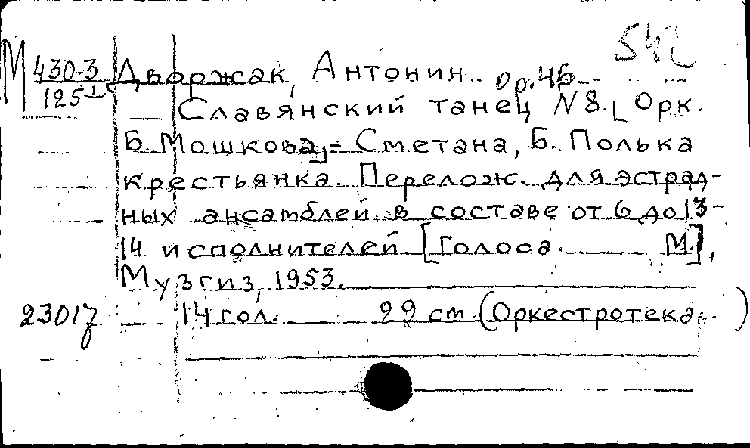 542
М 430-3 Дворжак, Антонин. ор.46
125
Славянский танец N 8. [Орк.
Б. Мошкова] = Сметана, Б. Полька
крестьянка. Перелож. для эстрад-
ных ансамблей в составе от 6 до 13-
14 исполнителей [Голоса. М.],
Музгиз, 1953.
23017 14 гол. 29 см. (Оркестротека. )